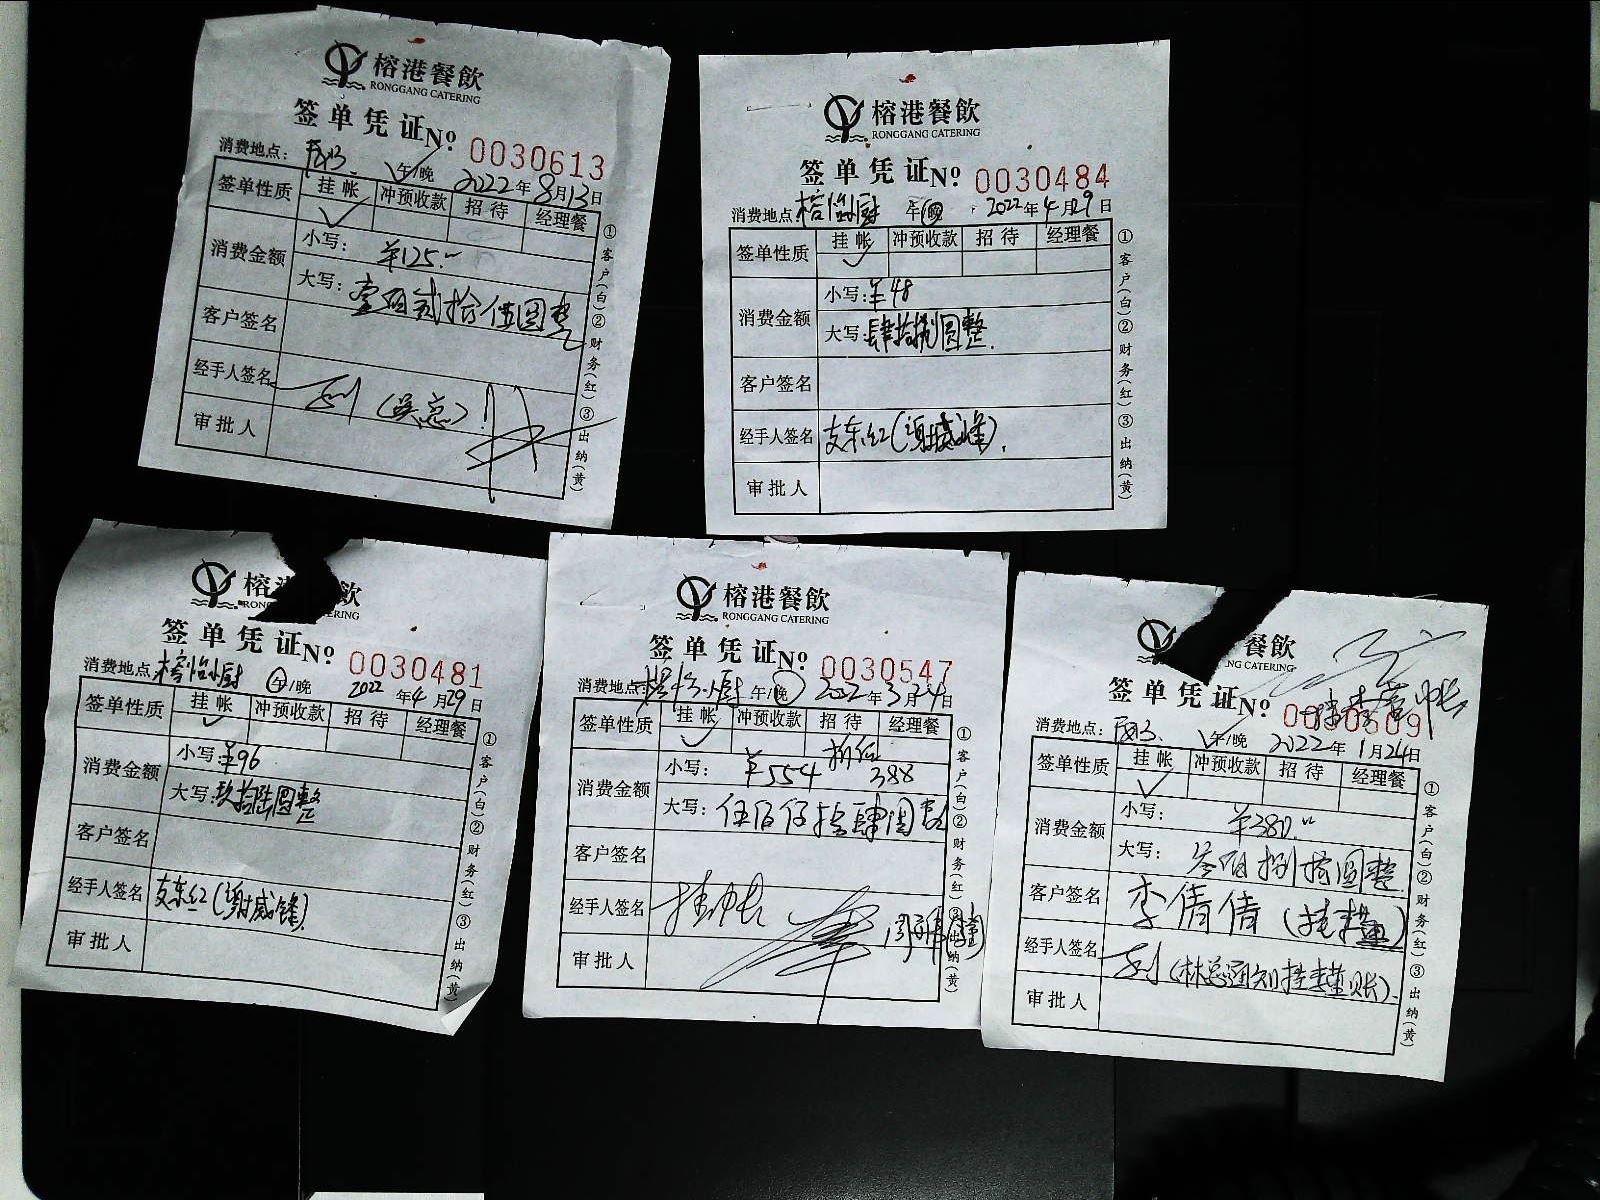 榕港餐飲
RONGGANG CATERING
签单凭证No 0030613
消费地点: 午/晚 2022年8月13日
签单性质 挂帐 冲预收款 招待 经理餐
消费金额 小写: ¥125.
大写: 壹佰贰拾伍圆整
客户签名
经手人签名 (吴总)
审批人
①客户(白)②财务(红)③出纳(黄)
榕港餐飲
RONGGANG CATERING
签单凭证No 0030484
消费地点 榕怡小厨 午/晚 2022年4月29日
签单性质 挂帐 冲预收款 招待 经理餐
消费金额 小写: ¥48
大写: 肆拾捌圆整
客户签名
经手人签名 支东红(谢威锋).
审批人
①客户(白)②财务(红)③出纳(黄)
榕港 飲
RONG CATERING
签单凭证No 0030481
消费地点 榕怡小厨 午/晚 2022年4月29日
签单性质 挂帐 冲预收款 招待 经理餐
消费金额 小写: ¥96
大写: 玖拾陆圆整
客户签名
经手人签名 支东红(谢威锋)
审批人
①客户(白)②财务(红)③出纳(黄)
榕港餐飲
RONGGANG CATERING
签单凭证No 0030547
消费地点 榕怡小厨 午/晚 2022年3月 日
签单性质 挂帐 冲预收款 招待 经理餐
消费金额 小写: ¥554 折后 388
大写: 伍佰伍拾肆圆整
客户签名
经手人签名 挂帐
审批人
①客户(白)②财务(红)③出纳(黄)
餐飲
NG CATERING
签单凭证No 0030609
消费地点: 午/晚 2022年1月24日
签单性质 挂帐 冲预收款 招待 经理餐
消费金额 小写: ¥380.
大写: 叁佰捌拾圆整
客户签名 李倩倩
经手人签名 (林总通知挂 账).
审批人
①客户(白)②财务(红)③出纳(黄)